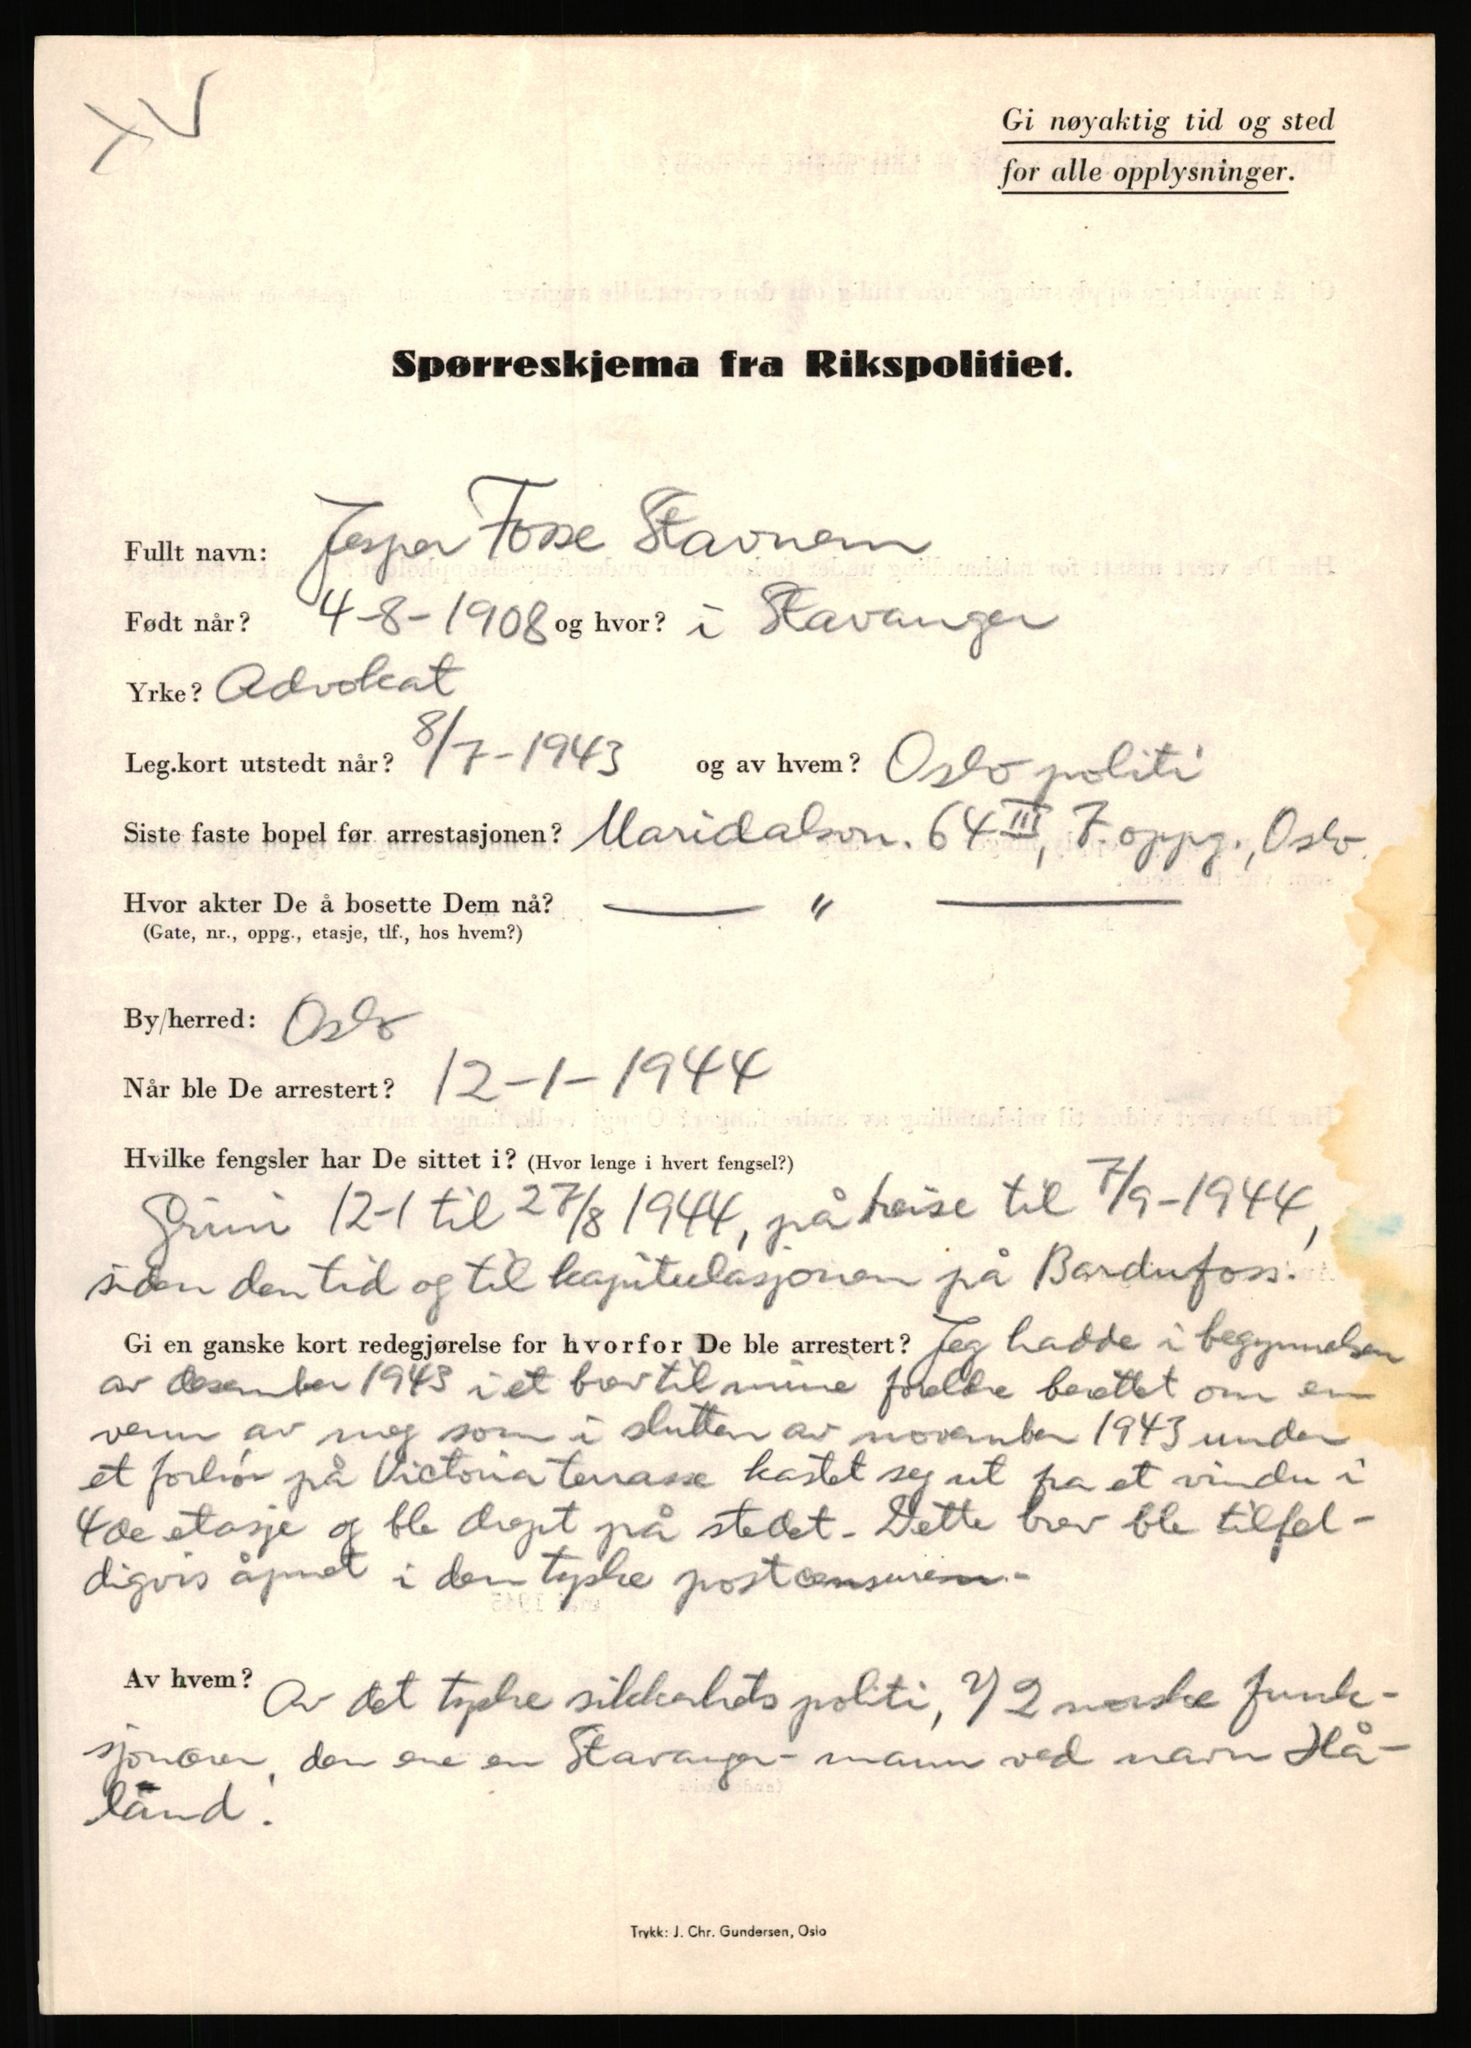 XV
Gi nøyaktig tid og sted
for alle opplysninger.
Spørreskjema fra Rikspolitiet.
Fullt navn: Jesper Fosse Stavnem
Født når? 4-8-1908 og hvor? i Stavanger
Yrke? Advokat
Leg.kort utstedt når? 8/7-1943 og av hvem? Oslo politi
Siste faste bopel før arrestasjonen? Maridalsvn. 64 III, 7. oppg., Oslo.
Hvor akter De å bosette Dem nå? — " —
(Gate, nr., oppg., etasje, tlf., hos hvem?)
By/herred: Oslo
Når ble De arrestert? 12-1-1944
Hvilke fengsler har De sittet i? (Hvor lenge i hvert fengsel?)
Grini 12-1 til 27/8 1944, på reise til 7/9-1944,
siden den tid og til kapitulasjonen på Bardufoss.
Gi en ganske kort redegjørelse for hvorfor De ble arrestert? Jeg hadde i begynnelsen
av desember 1943 i et brev til mine foreldre berettet om en
venn av meg som i slutten av november 1943 under
et forhør på Victoria terrasse kastet seg ut fra et vindu i
4de etasje og ble drept på stedet. Dette brev ble tilfel-
digvis åpnet i den tyske postcensuren.
Av hvem? Av det tyske sikkerhets politi, v/ 2 norske funk-
sjonærer, den ene en Stavanger-mann ved navn Hå-
land.
Trykk: J. Chr. Gundersen, Oslo